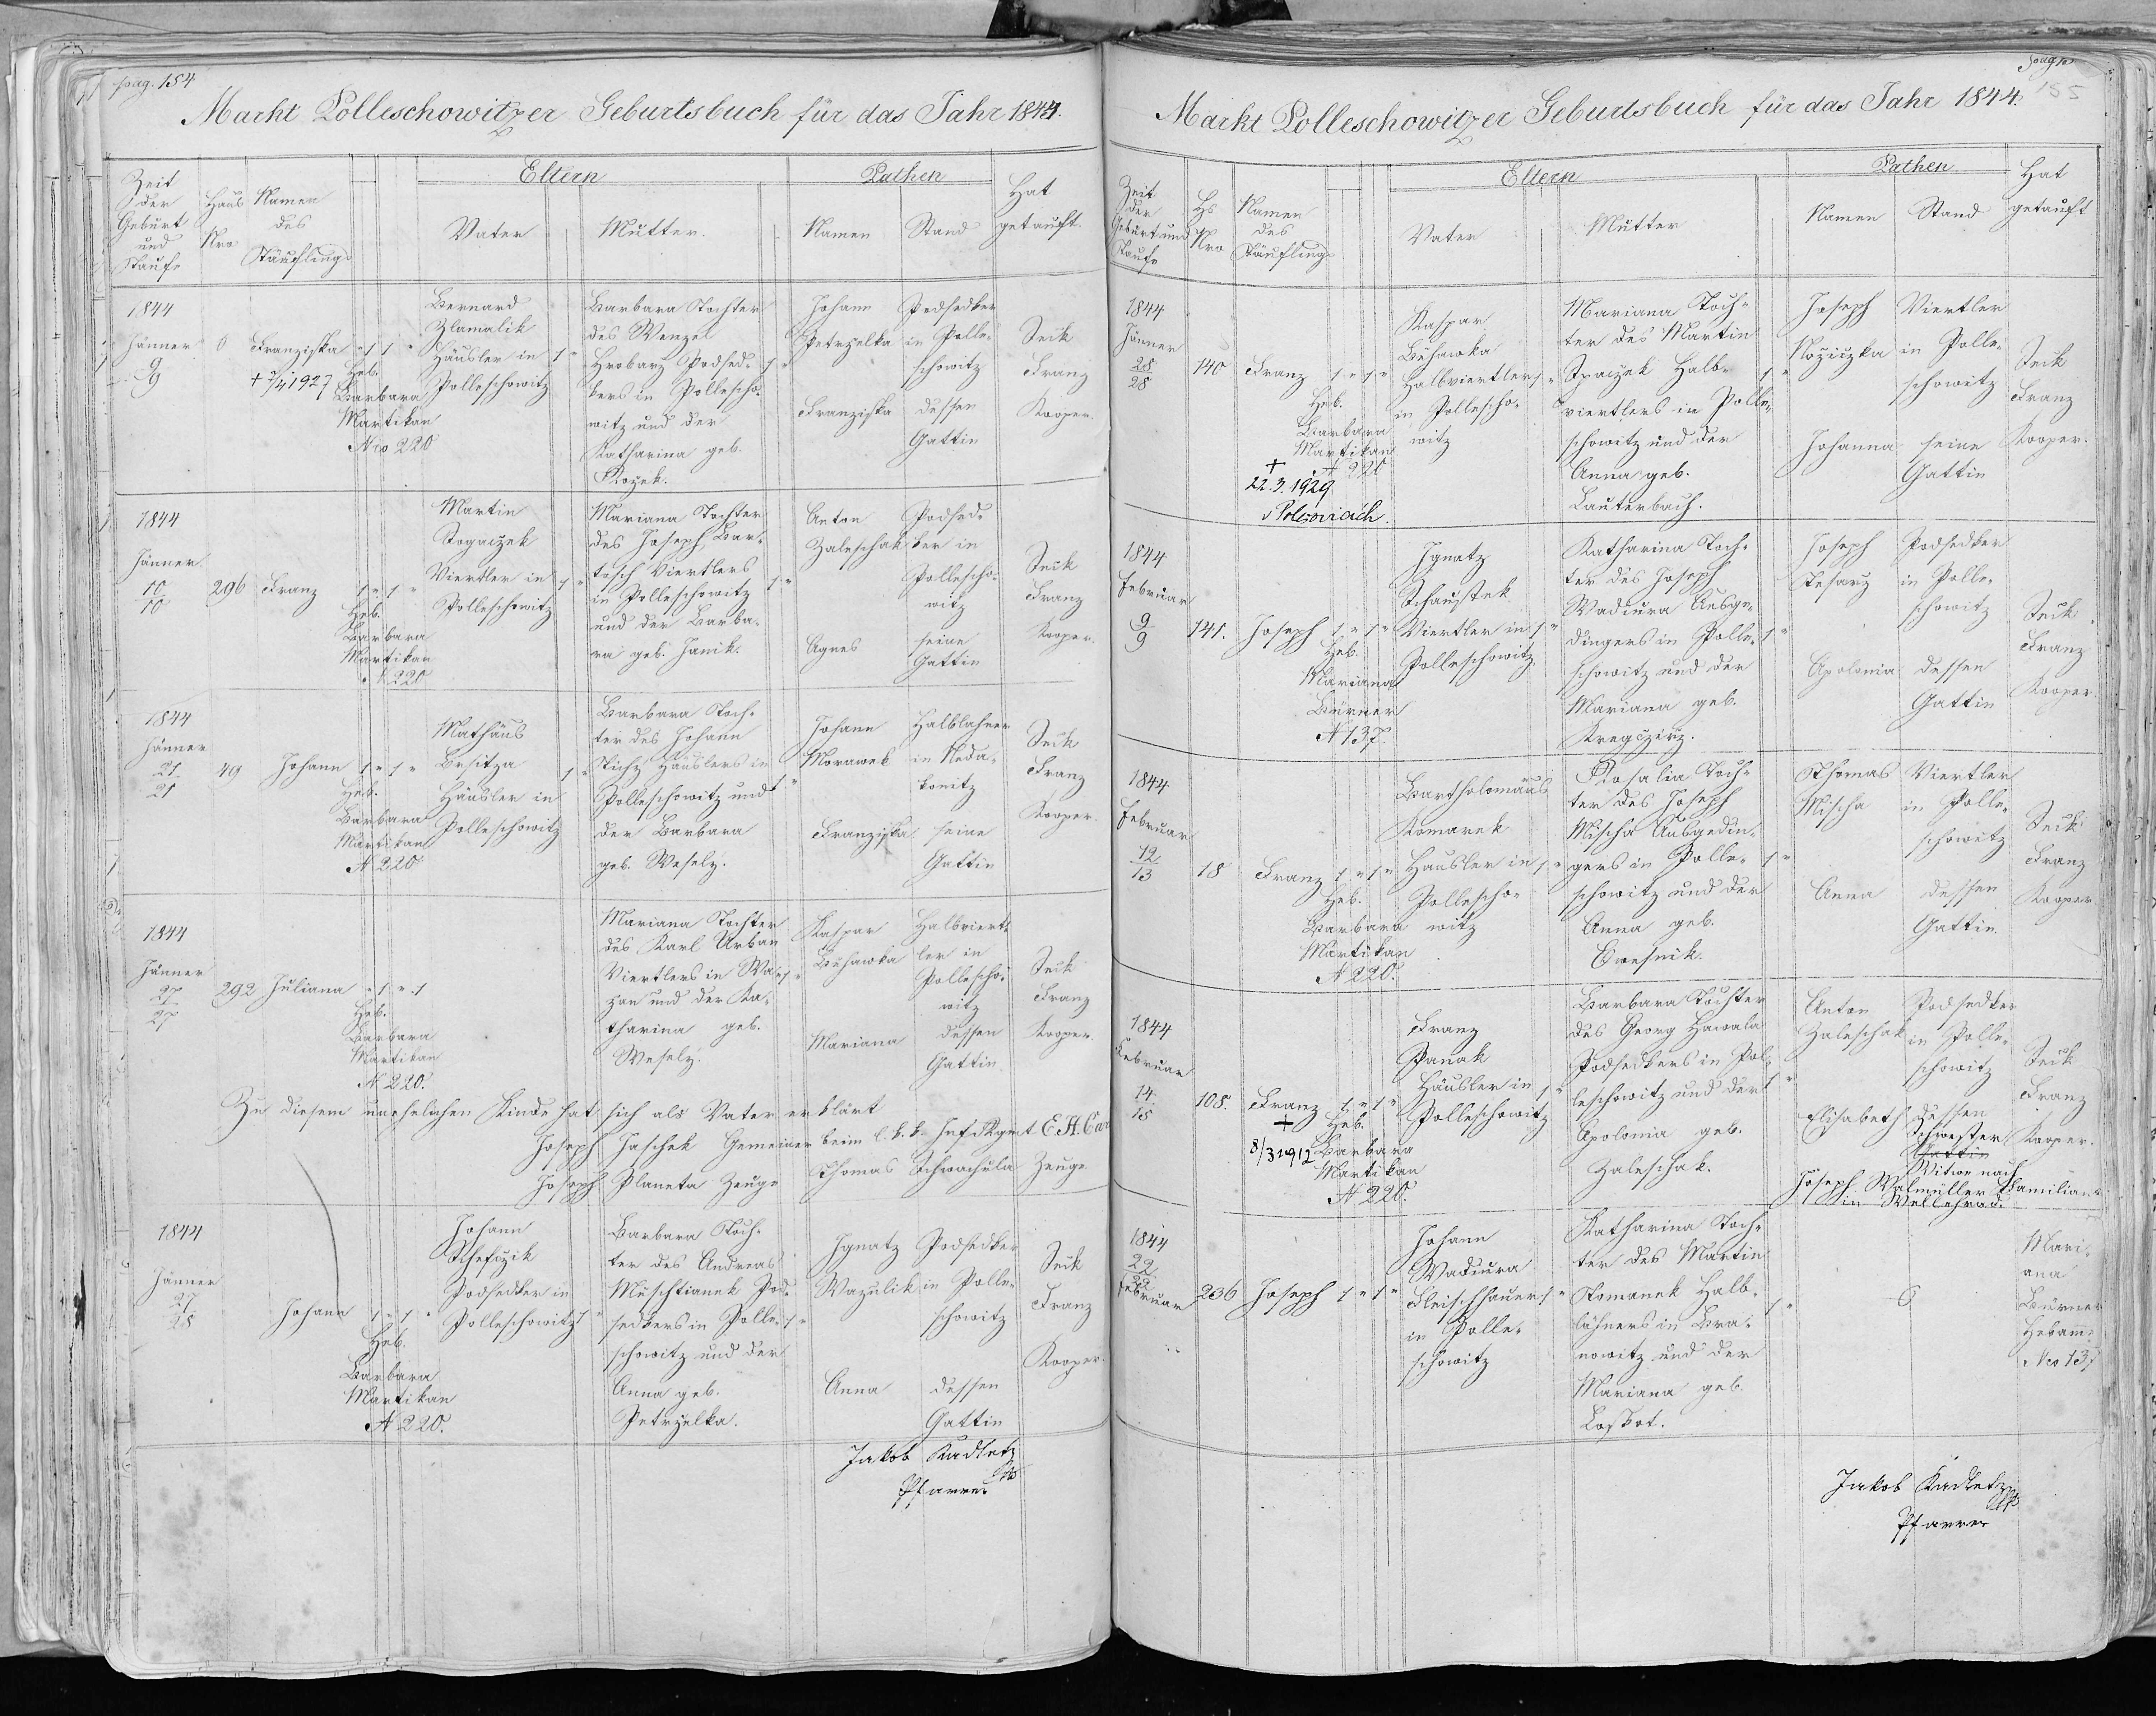 pag. 154
Markt Polleschowitzer Geburtsbuch für das Jahr 1844.
Zeit der Geburt und Taufe
Haus Nro
Namen des Täuflings
Eltern
Vater
Mutter.
Pathen
Namen
Stand
Hat getauft.
1844
Jänner
9
9
Franziska
+ 1927
Heb.
Barbara
Martikan
Nro 220
Bernard
Zlamalik
Häusler in
Polleschowitz
Barbara Tochter
des Wenzel
Hrobarz Podsed-
kers in Pollescho-
witz und der
Katharina geb.
Johann
Petrzelka
Franziska
Podsedker
in Polle-
schowitz
dessen
Gattin
Franz
Kooper.
1844
Jänner
10
10
296
Franz
Heb.
Barbara
Martikan
N 220
Martin
Togaczek
Viertler in
Polleschowitz
Mariana Tochter
des Joseph Bar-
tosch Viertlers
in Polleschowitz
und der Barba-
ra geb. Janik.
Anton
Zaleschak
Agnes
Podsed-
ker in
Pollescho-
witz
seine
Gattin
Franz
Kooper.
1844
Jänner
21
21
49
Johann
Heb.
Barbara
Martikan
N 220
Mathäus
Besitza
Häusler in
Polleschowitz
Barbara Toch-
ter des Johann
Tichy Häuslers in
Polleschowitz und
der Barbara
geb. Wesely.
Johann
Morawek
Franziska
Halblahner
in Neda-
konitz
seine
Gattin
Franz
Kooper.
1844
Jänner
27
27
292
Juliana
Heb.
Barbara
Martikan
N 220.
Mariana Tochter
des Karl Urban
Viertlers in Wa-
zan und der Ka-
tharina geb.
Wesely.
Kaspar
Buhawka
Mariana
Halbviert-
ler in
Pollescho-
witz
dessen
Gattin
Franz
Kooper
Zu diesem unehelichen Kinde hat sich als Vater erklärt
Joseph Jaschek Gemeiner beim l. k. k. Inf. Rgmt E. H. Carl
Joseph Planeta Zeuge Thomas Schwachula Zeuge
1844
Jänner
27
28
Johann
Heb.
Barbara
Martikan
N 220.
Johann
Schefczik
Podsedker in
Polleschowitz
Barbara Toch-
ter des Andreas
Muschtianek Pod-
sedkers in Polle-
schowitz und der
Anna geb.
Petrzelka.
Ignatz
Wazulik
Anna
Podsedker
in Polle-
schowitz
dessen
Gattin
Franz
Kooper.
Jakob Kadletz
Pfarrer
pag.
155
Markt Polleschowitzer Geburtsbuch für das Jahr 1844.
Zeit der Geburt und Taufe
Hs Nro
Namen des Täuflings
Eltern
Vater
Mutter
Pathen
Namen
Stand
Hat getauft
1844
Jänner
28
28
140
Franz
Heb.
Barbara
Martikan
N 220
+
22.3.1929
v Polešovicích.
Kaspar
Buhawka
Halbviertler
in Pollescho-
witz
Mariana Toch-
ter des Martin
Spaczek Halb-
viertlers in Polle-
schowitz und der
Anna geb.
Lauterbach.
Joseph
Nožiczka
Johanna
Viertler
in Polle-
schowitz
seine
Gattin
Franz
Kooper.
1844
Februar
9
9
141.
Joseph
Heb.
Mariana
Bürner
N 137.
Ignatz
Schaustek
Viertler in
Polleschowitz
Katharina Toch-
ter des Joseph
Wadiura Ausge-
dingers in Polle-
schowitz und der
Mariana geb.
Kregczirz.
Joseph
Tesarz
Apolonia
Podsedker
in Polle-
schowitz
dessen
Gattin
Franz
Kooper.
1844
Februar
12
13
18
Franz
Heb.
Barbara
Martikan
N 220.
Bartholomäus
Komarek
Häusler in
Pollescho-
witz
Rosalia Toch-
ter des Joseph
Mischa Ausgedin-
gers in Polle-
schowitz und der
Anna geb.
Thomas
Mischa
Anna
Viertler
in Polle-
schowitz
dessen
Gattin.
Franz
Kooper
1844
Februar
14
15
108.
Franz
+
8/3 1912
Heb.
Barbara
Martikan
N 220.
Franz
Panak
Häusler in
Polleschowitz
Barbara Tochter
des Georg Hawala
Podsedkers in Pol-
leschowitz und der
Apolonia geb.
Zaleschak.
Anton
Zaleschak
Elisabeth
Podsedker
in Polle-
schowitz
dessen
Schwester
Gattin
Witwe nach
Joseph Walmüller Familian-
in Wellehrad.
Franz
Kooper.
1844
22
22
Februar
236
Joseph
Johann
Wadiura
Fleischhauer
in Polle-
schowitz
Katharina Toch-
ter des Martin
Tomanek Halb-
lähners in Bra-
nowitz und der
Mariana geb.
Loskot.
Mari-
ana
Bürner
Hebam̅e
Nro 137
Jakob Kadletz
Pfarrer